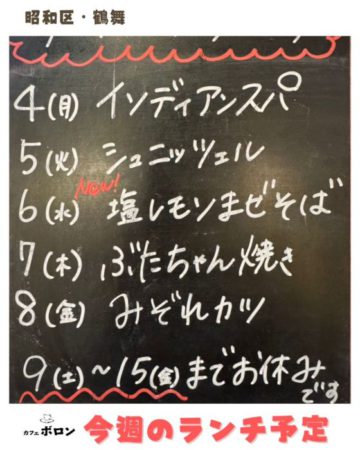 昭和区・鶴舞
4(月) インディアンスパ
5(火) シュニッツェル
New!
6(水) 塩レモンまぜそば
7(木) ぶたちゃん焼き
8(金) みぞれカツ
9(土)〜15(金)までお休み
です
カフェ ボロン
今週のランチ予定